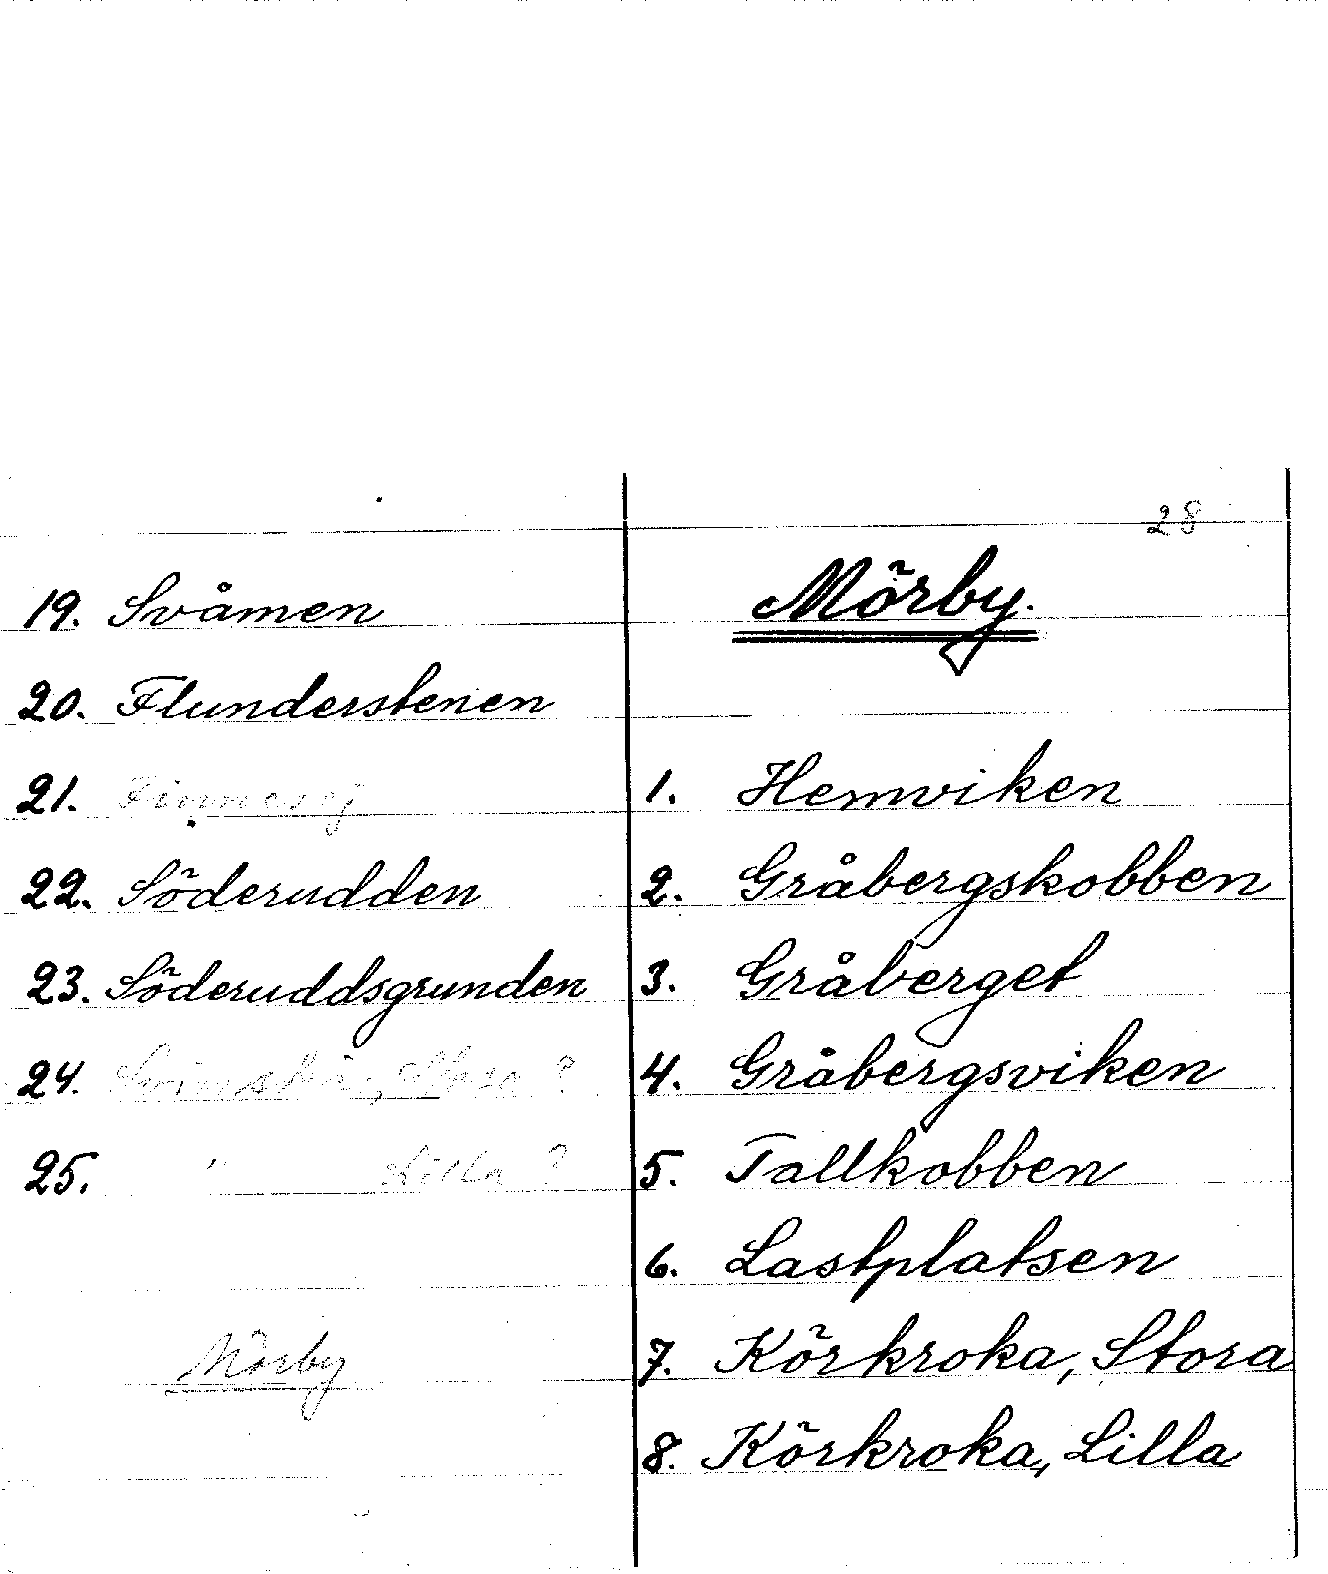 19. Svåmen
20. Flunderstenen
21.
22. Söderudden
23. Söderuddsgrunden
24. ?
25. " Lilla ?
Mörby
28
Mörby.
1. Hemviken
2. Gråbergskobben
3. Gråberget
4. Gråbergsviken
5. Tallkobben
6. Lastplatsen
7. Körkroka, Stora
8. Körkroka, Lilla